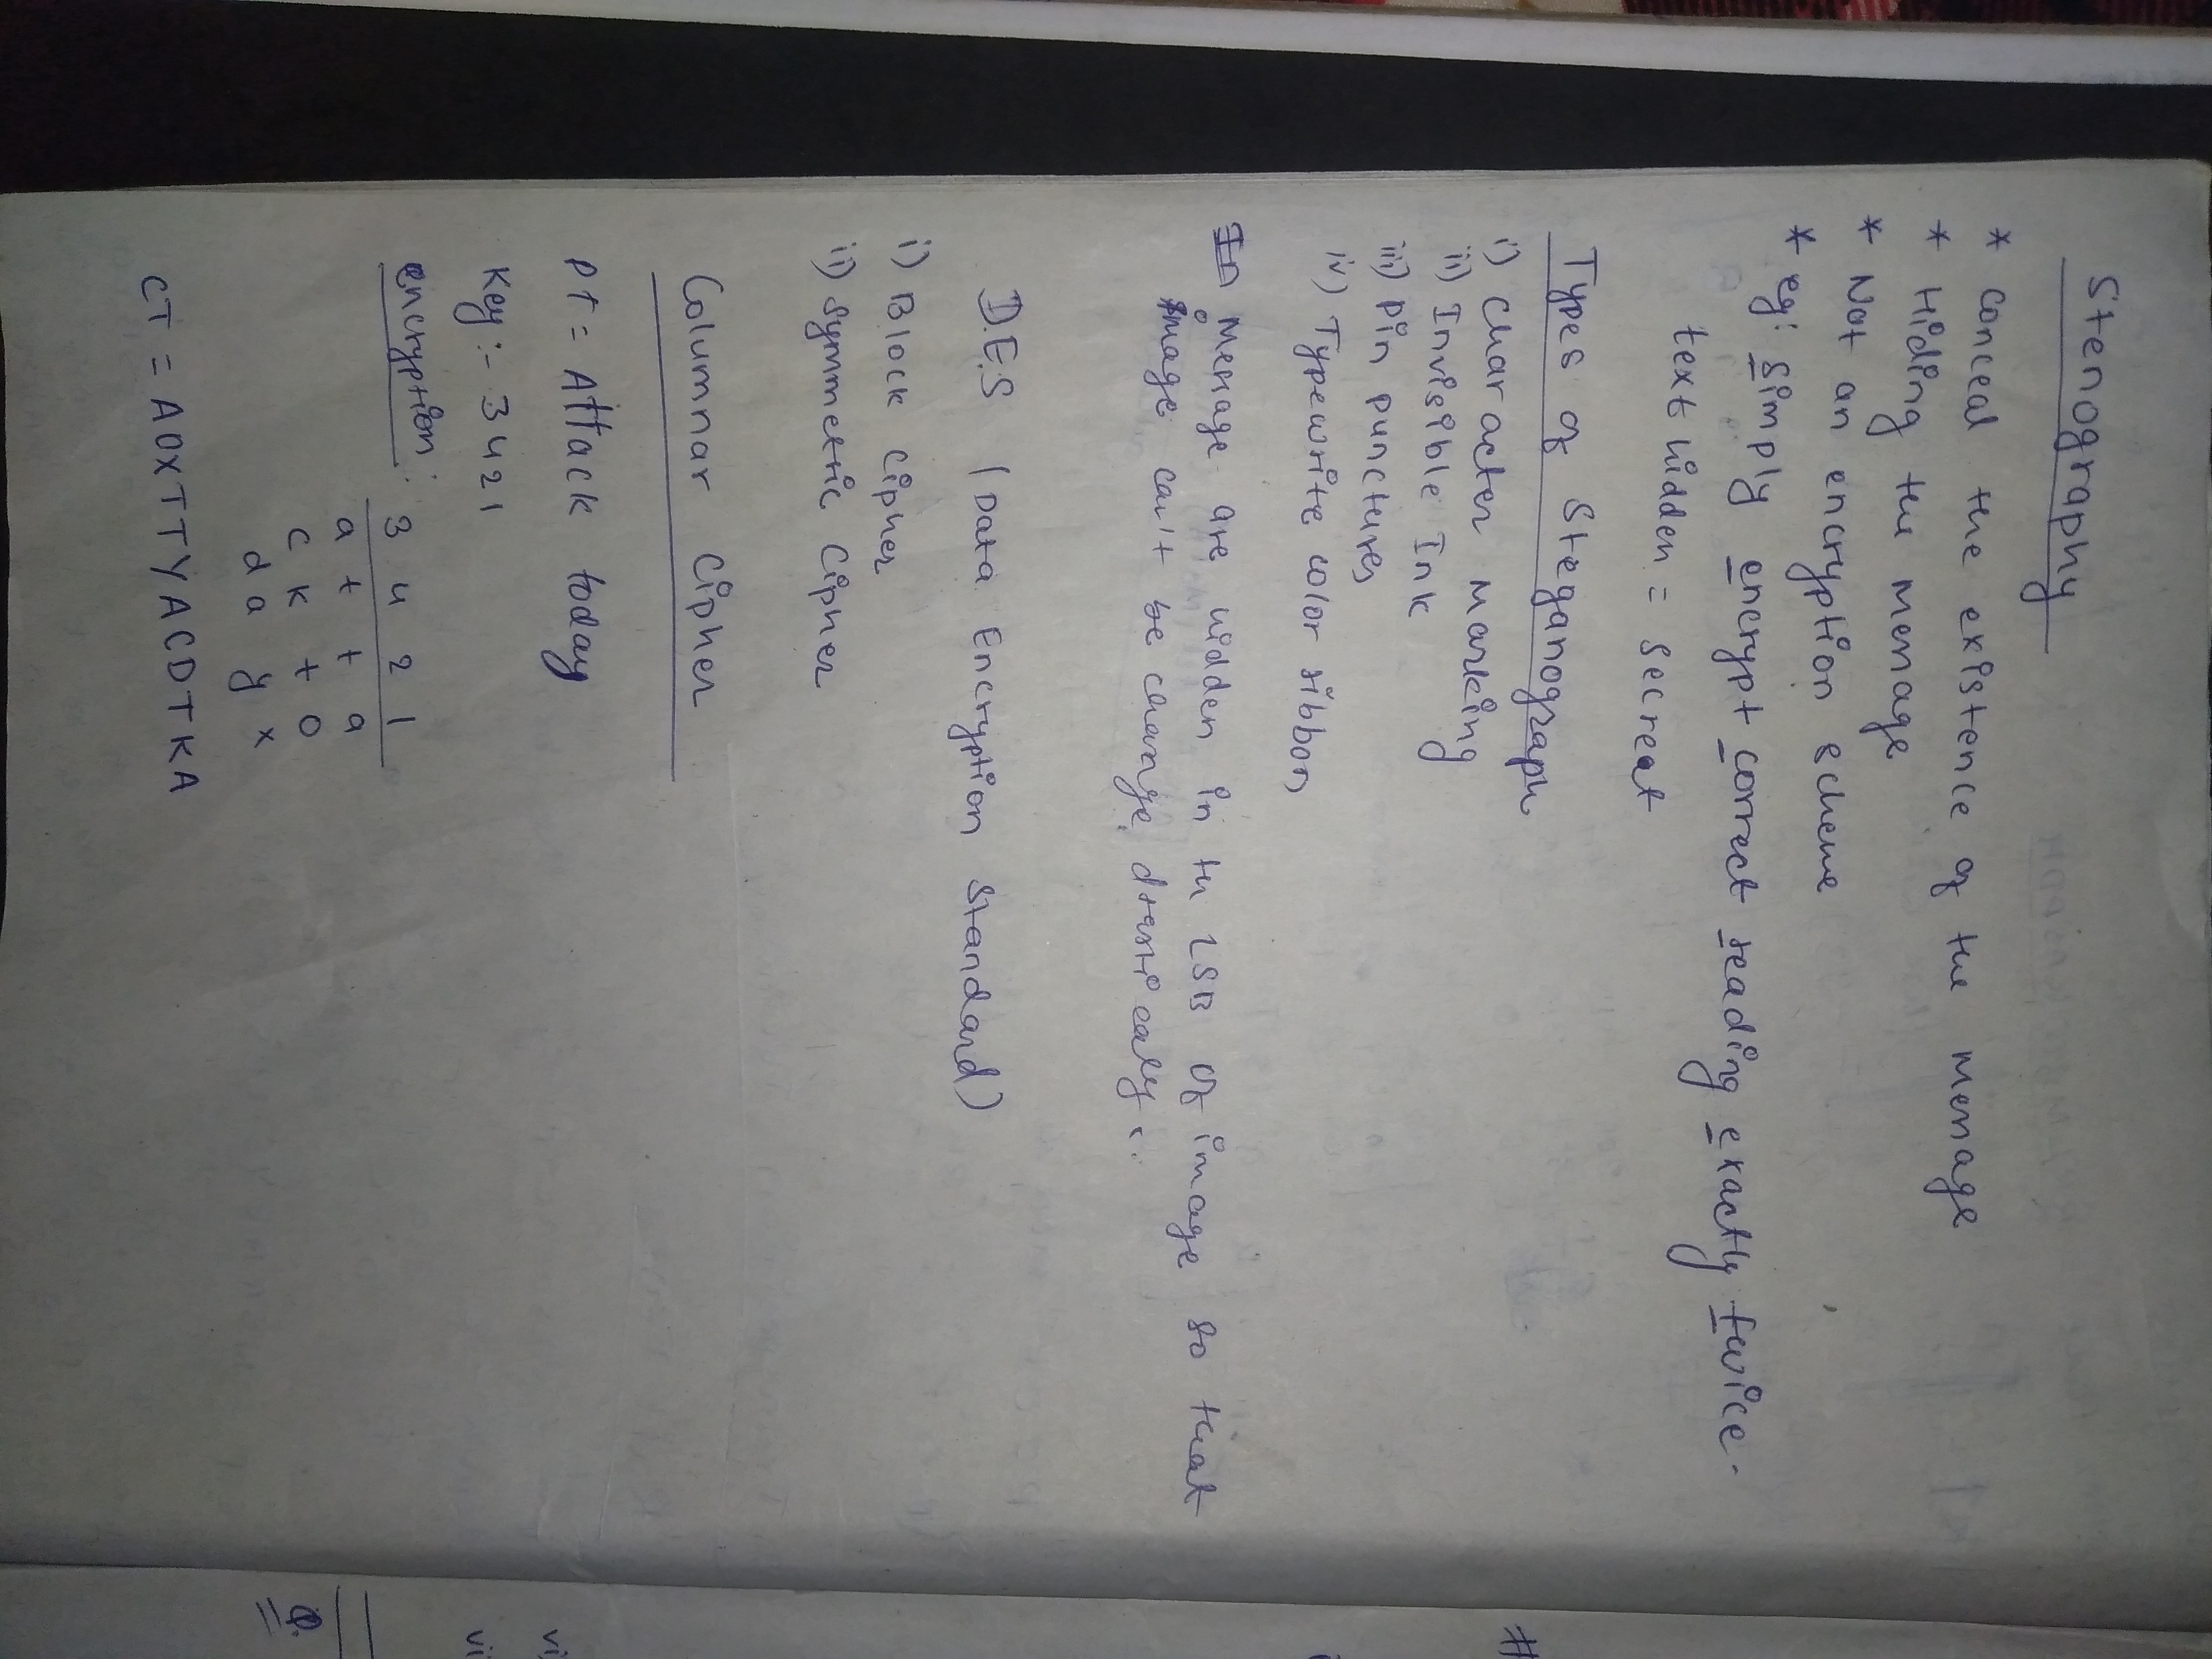 Stenography
* conceal the existence of the message
* Hiding the message
* Not an encryption scheme
* eg: simply encrypt correct reading exactly twice.
text hidden = secreat
Types of Steganograph
i) character marking
ii) Invisible Ink
iii) pin punctures
iv) Typewrite color ribbon
Message are hidden in the LSB of image so that
image can't be change drastically.
DES (Data Encryption Standard)
i) Block cipher
ii) Symmetric Cipher
Columnar Cipher
PT = Attack today
Key :- 3 4 2 1
encryption: 3 4 2 1
a t t a
c k t o
d a y x
CT = AOXTTYACDTKA
#
vi)
vi
Q.